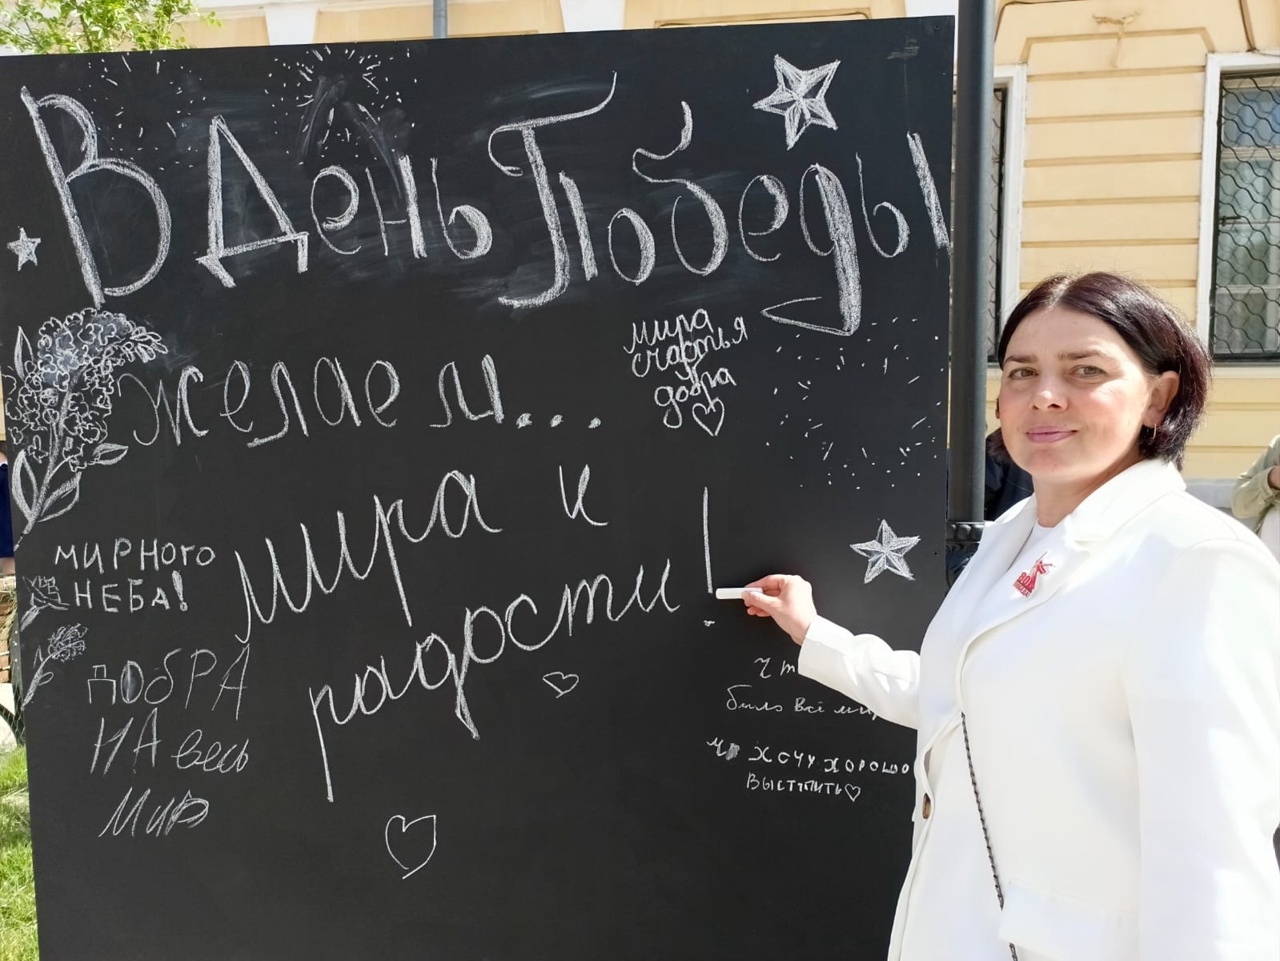 В День Победы
желаем...
мира
счастья
добра
мира и
радости!
МИРНОГО
НЕБА!
ДОБРА
НА весь
Мир
было всё
хочу хорошо
выступить
80